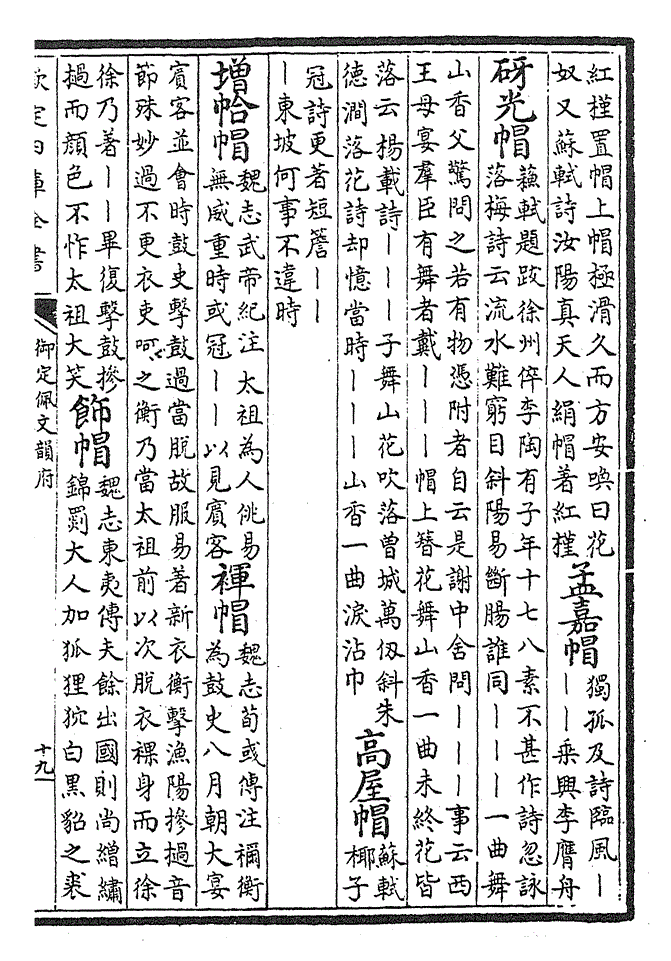 紅槿置帽上帽極滑久而方安喚曰花
奴又蘇軾詩汝陽真天人絹帽著紅槿
孟嘉帽
獨孤及詩臨風—
——乘興李膺舟
砑光帽
蘇軾題跋徐州倅李陶有子年十七八素不甚作詩忽詠
落梅詩云流水難窮目斜陽易斷腸誰同———一曲舞
山香父驚問之若有物憑附者自云是謝中舍問———事云西
王母宴羣臣有舞者戴———帽上簪花舞山香一曲未終花皆
落云楊載詩———子舞山花吹落曾城萬仭斜朱
德澗落花詩却憶當時———山香一曲淚沾巾
高屋帽
蘇軾
椰子
冠詩更著短簷——
—東坡何事不違時
增帢帽
魏志武帝紀注太祖為人佻易
無威重時或冠——以見賓客
褌帽
魏志荀彧傳注禰衡
為鼓史八月朝大宴
賓客並會時鼓史擊鼓過當脫故服易著新衣衡擊漁陽摻撾音
節殊妙過不更衣吏呵之衡乃當太祖前以次脫衣裸身而立徐
徐乃著——畢復擊鼓摻
撾而顏色不怍太祖大笑
飾帽
魏志東夷傳夫餘出國則尚繒繡
錦罽大人加狐狸狖白黑貂之裘
欽定四庫全書
御定佩文韻府
十九